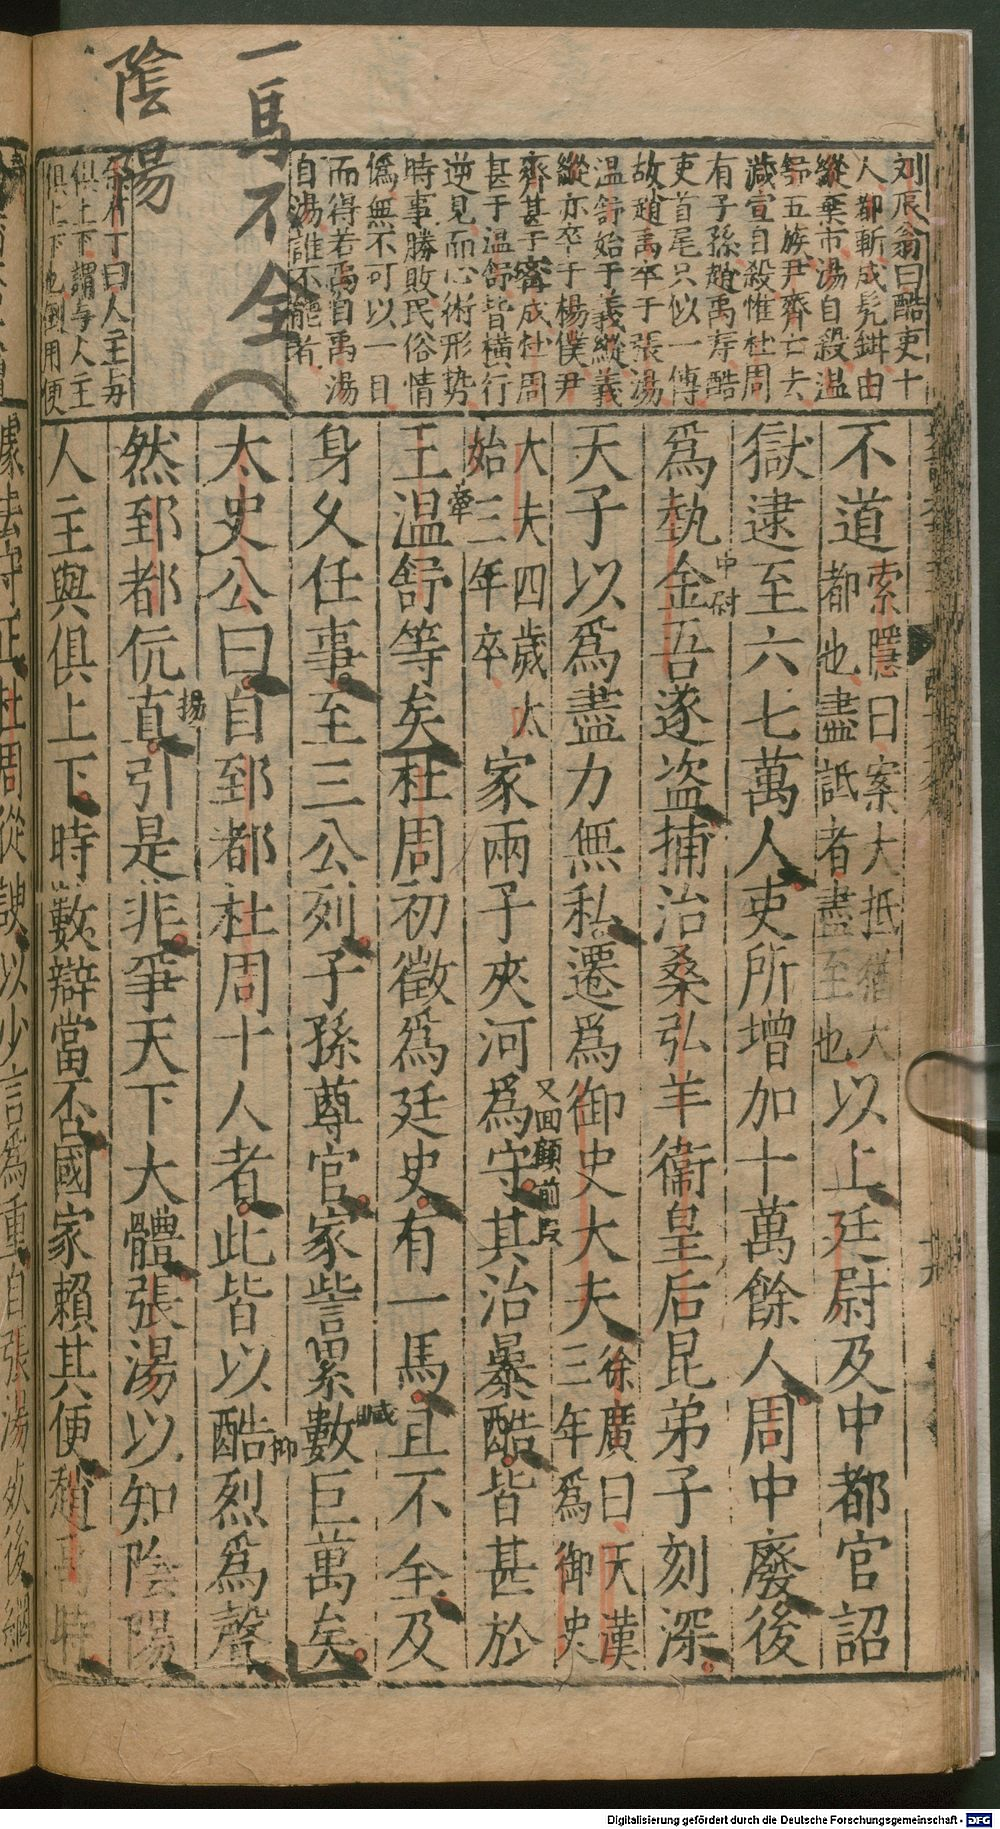 一馬不全
陰陽
刘辰翁曰酷吏十
人都斬成髡鉗由
縱棄市湯自殺温
舒五族尹齊亡去
减宣自殺惟杜周
有子孫趙禹壽酷
吏首尾只似一傳
故趙禹卒于張湯
温舒始于義縱義
縱亦卒于楊僕尹
齊甚于甯成杜周
甚于温舒皆橫行
逆見而心術形势
時事勝敗民俗情
偽無不可以一目
而得若禹自禹湯
自湯誰不能者
丁曰人主每
俱上下謂与人主
俱上下也倒用便
不道索隱曰案大抵猶大
都也盡詆者盡至也以上廷尉及中都官詔
獄逮至六七萬人吏所增加十萬餘人周中廢後
中尉
爲執金吾逐盜捕治桑弘羊衞皇后昆弟子刻深
天子以爲盡力無私遷爲御史大夫徐廣曰天漢
三年爲御史
又回顧前段
大夫四歲太
始三年卒家兩子夾河爲守其治暴酷皆甚於
牽
王温舒等矣杜周初徵爲廷史有一馬且不全及
喊
身久任事至三公列子孫尊官家訾累數巨萬矣
太史公曰自郅都杜周十人者此皆以酷烈爲聲
抑
揚
然郅都伉直引是非爭天下大體張湯以知陰陽
人主與俱上下時數辯當否國家賴其便趙禹時
據法守正杜周從諛以少言爲重自張湯死後網
Digitalisierung gefördert durch die Deutsche Forschungsgemeinschaft - DFG